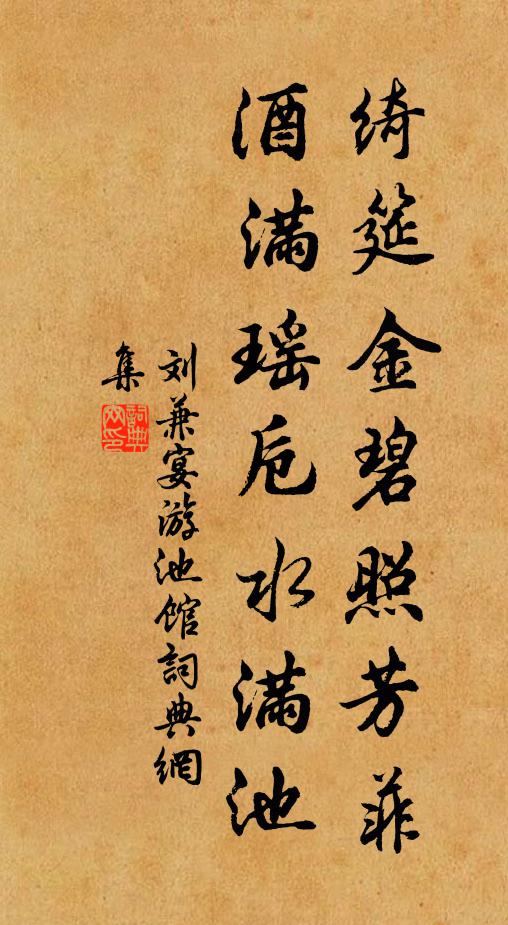 绮筵金碧照芳菲
酒满瑶卮水满池
刘兼宴游池馆詞典網
集
詞典
网印